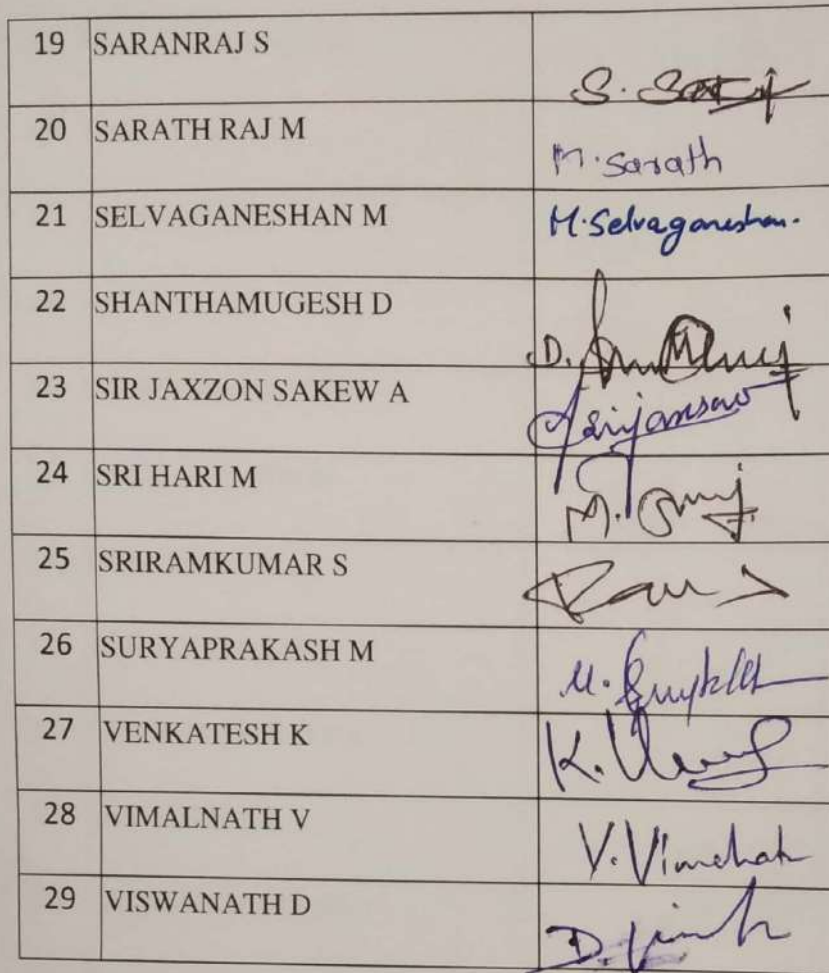 19 SARANRAJ S S.
20 SARATH RAJ M M. Sarath
21 SELVAGANESHAN M M. Selvaganeshan.
22 SHANTHAMUGESH D D.
23 SIR JAXZON SAKEW A
24 SRI HARI M M.
25 SRIRAMKUMAR S
26 SURYAPRAKASH M M.
27 VENKATESH K K.
28 VIMALNATH V V.
29 VISWANATH D D.